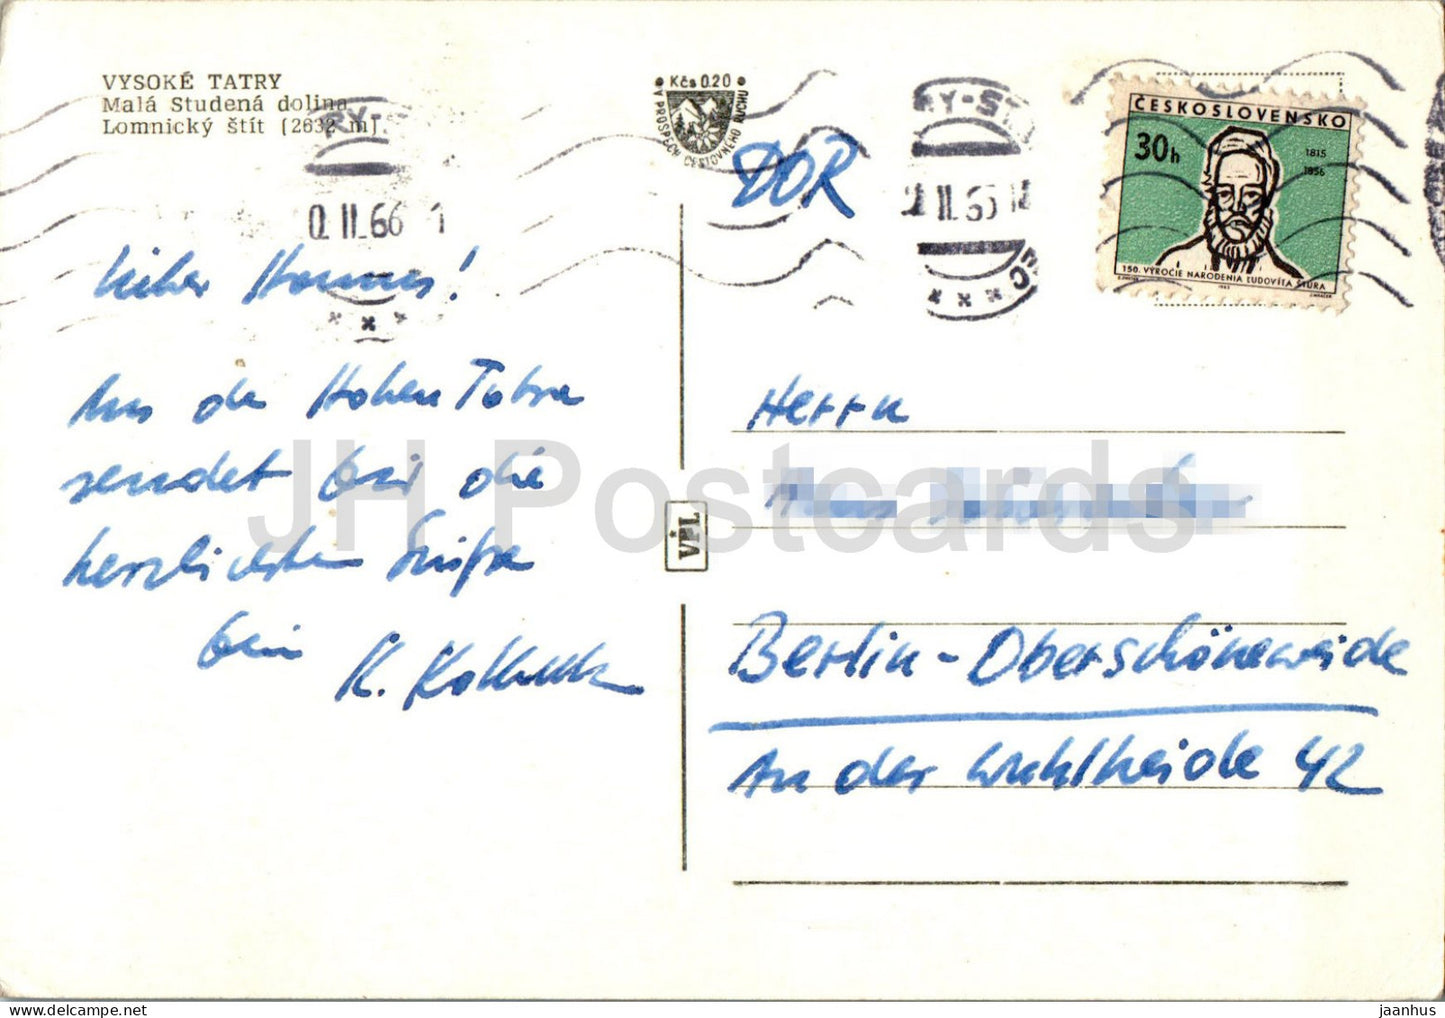 VYSOKÉ TATRY
Malá Studená dolina
Lomnický štít [2632 m]
Kčs 0.20
V PROSPECH CESTOVNÉHO RUCHU
0.II.66 1
DDR
II.66
ČESKOSLOVENSKO
30h
1815
1856
150. VÝROČIE NARODENIA ĽUDOVÍTA ŠTÚRA
Lieber Hannes!
Aus der Hohen Tatra
sendet Dir die
herzlichsten Grüße
Dein
K.
VPL
Herrn
Berlin-Oberschöneweide
An der Wuhlheide 42
JH Postcards
www.delcampe.net
jaanhus